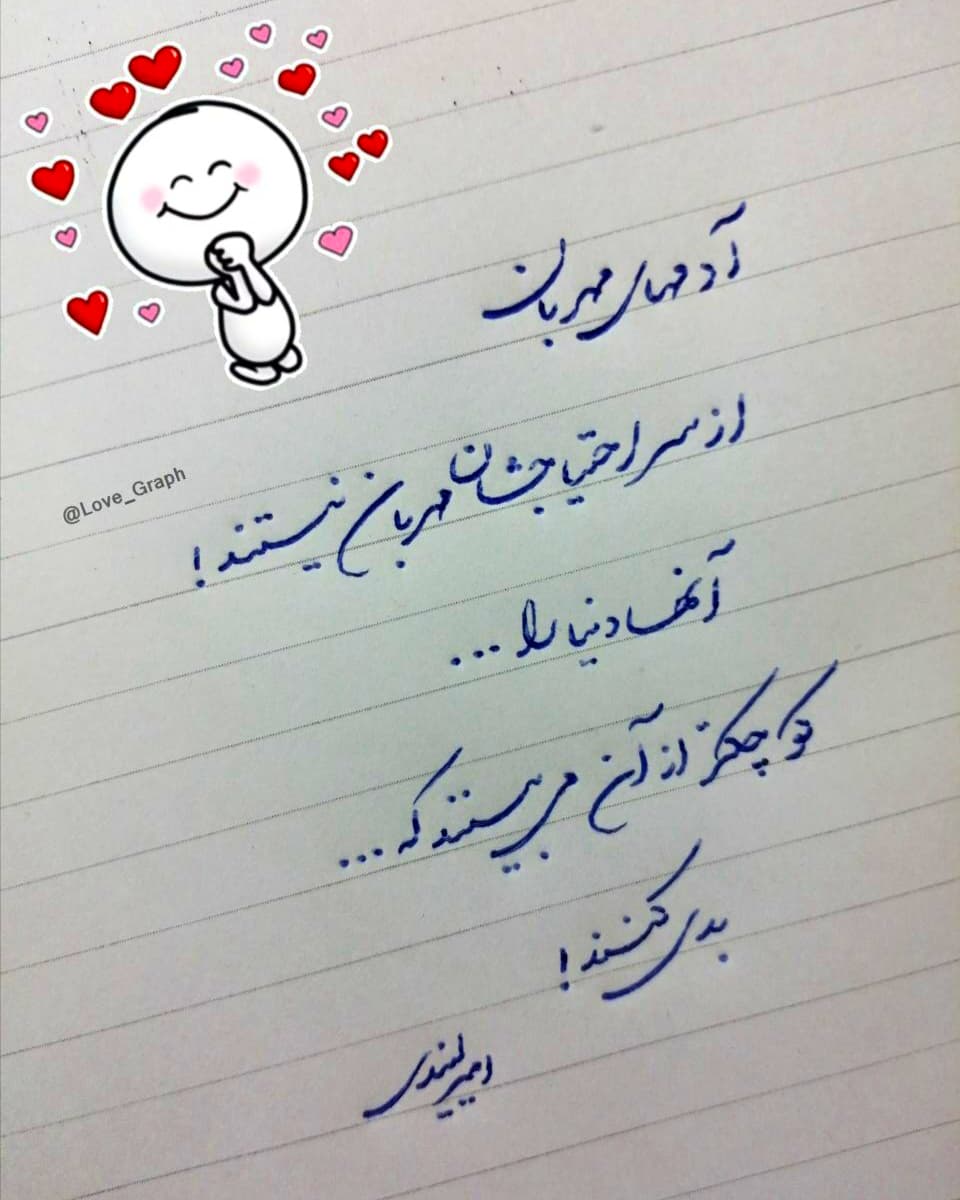 آدمهای مهربان
از سر احتیاجشان مهربان نیستند!
@Love_Graph
آنها دنیا را...
کوچکتر از آن می بینند که...
بدی کنند!